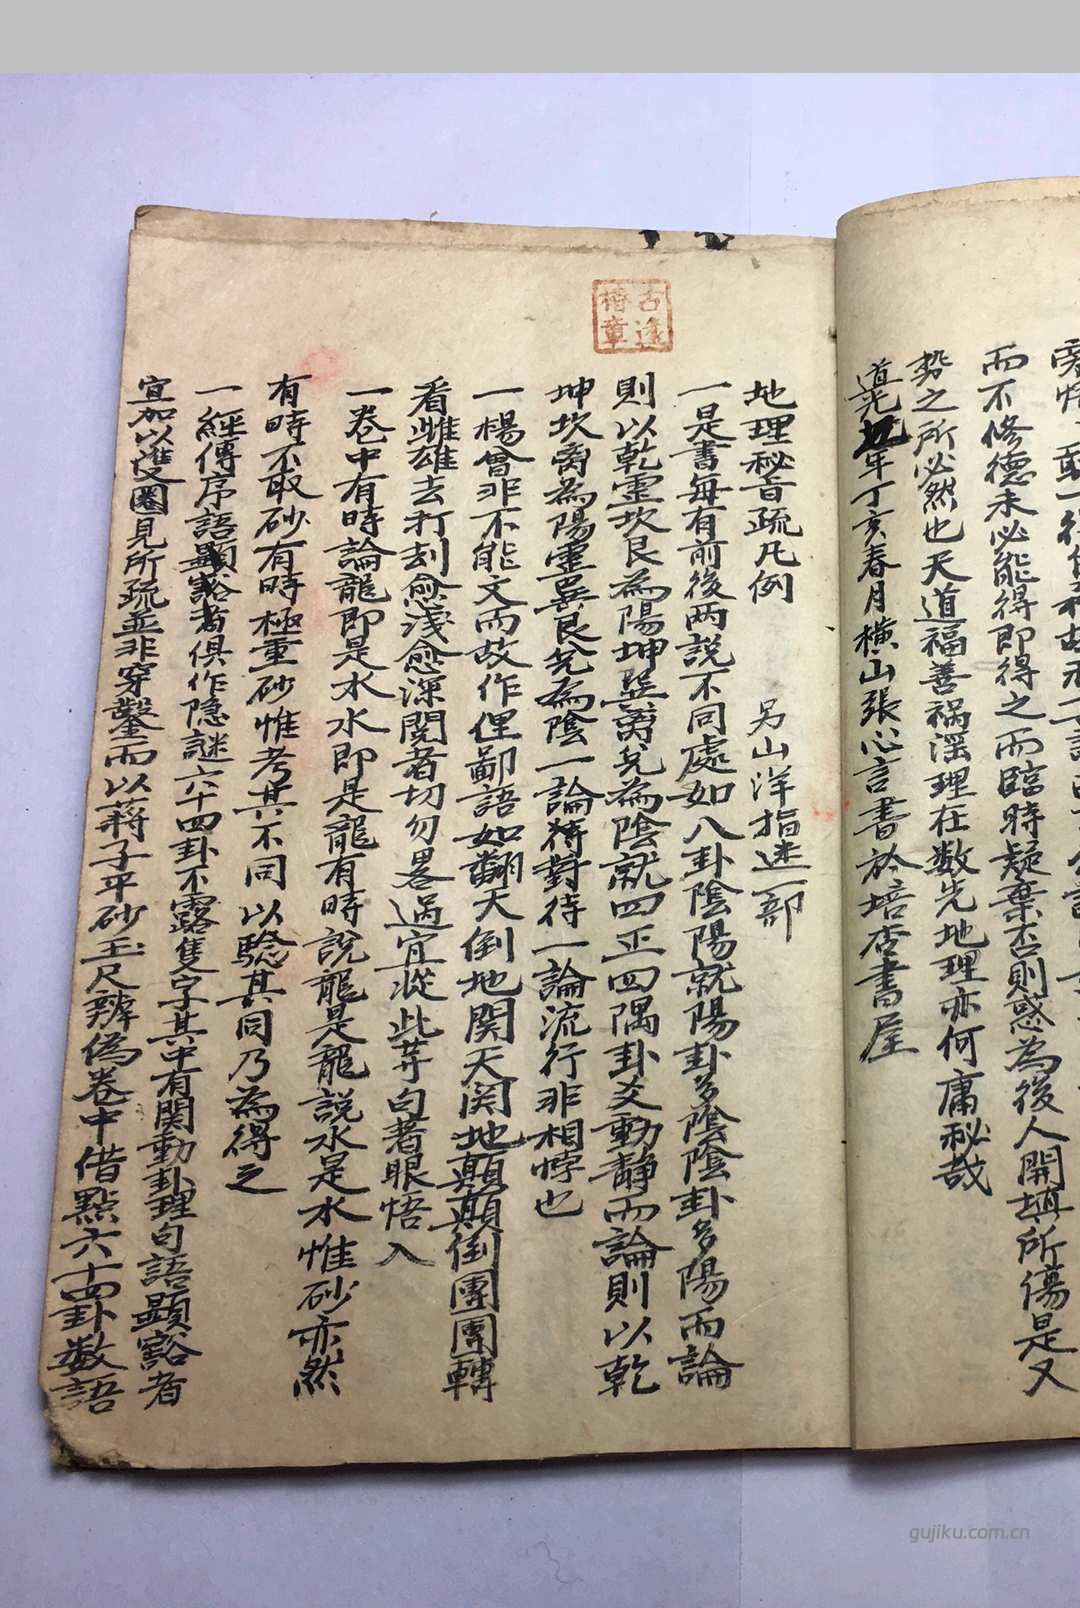 而不修德未必能得即得之而臨時疑棄否則惑為後人開填所傷是又
勢之所必然也天道福善禍淫理在数先地理亦何庸秘哉
道光年丁亥春月橫山張心言書於培杏書屋
地理秘旨疏凡例 另山洋指迷一部
一是書每有前後两說不同處如八卦陰陽就陽卦多陰陰卦多陽而論
則以乾震坎艮為陽坤巽离兌為陰就四正四隅卦爻動靜而論則以乾
坤坎离為陽震巽艮兌為陰一論對待一論流行非相悖也
一楊曾非不能文而故作俚鄙語如翻天倒地関天関地顛顛倒團團轉
看雌雄去打刦愈淺愈深閱者切勿畧過宜從此等句著眼悟入
一卷中有時論龍即是水水即是龍有時說龍是龍說水是水惟砂亦然
有時不取砂有時極重砂惟考其不同以驗其同乃為得之
一經傳序語顯豁者俱作隐謎六十四卦不露隻字其中有関動卦理句語顯豁者
宜加以雙圈見所疏並非穿鑿而以蔣子平砂玉尺辨偽卷中借點六十四卦数語
古逸
椿章
gujiku.com.cn